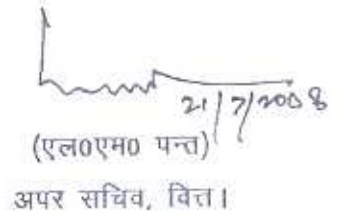 21/7/2008
(एल0एम0 पन्त)
अपर सचिव, वित्त।